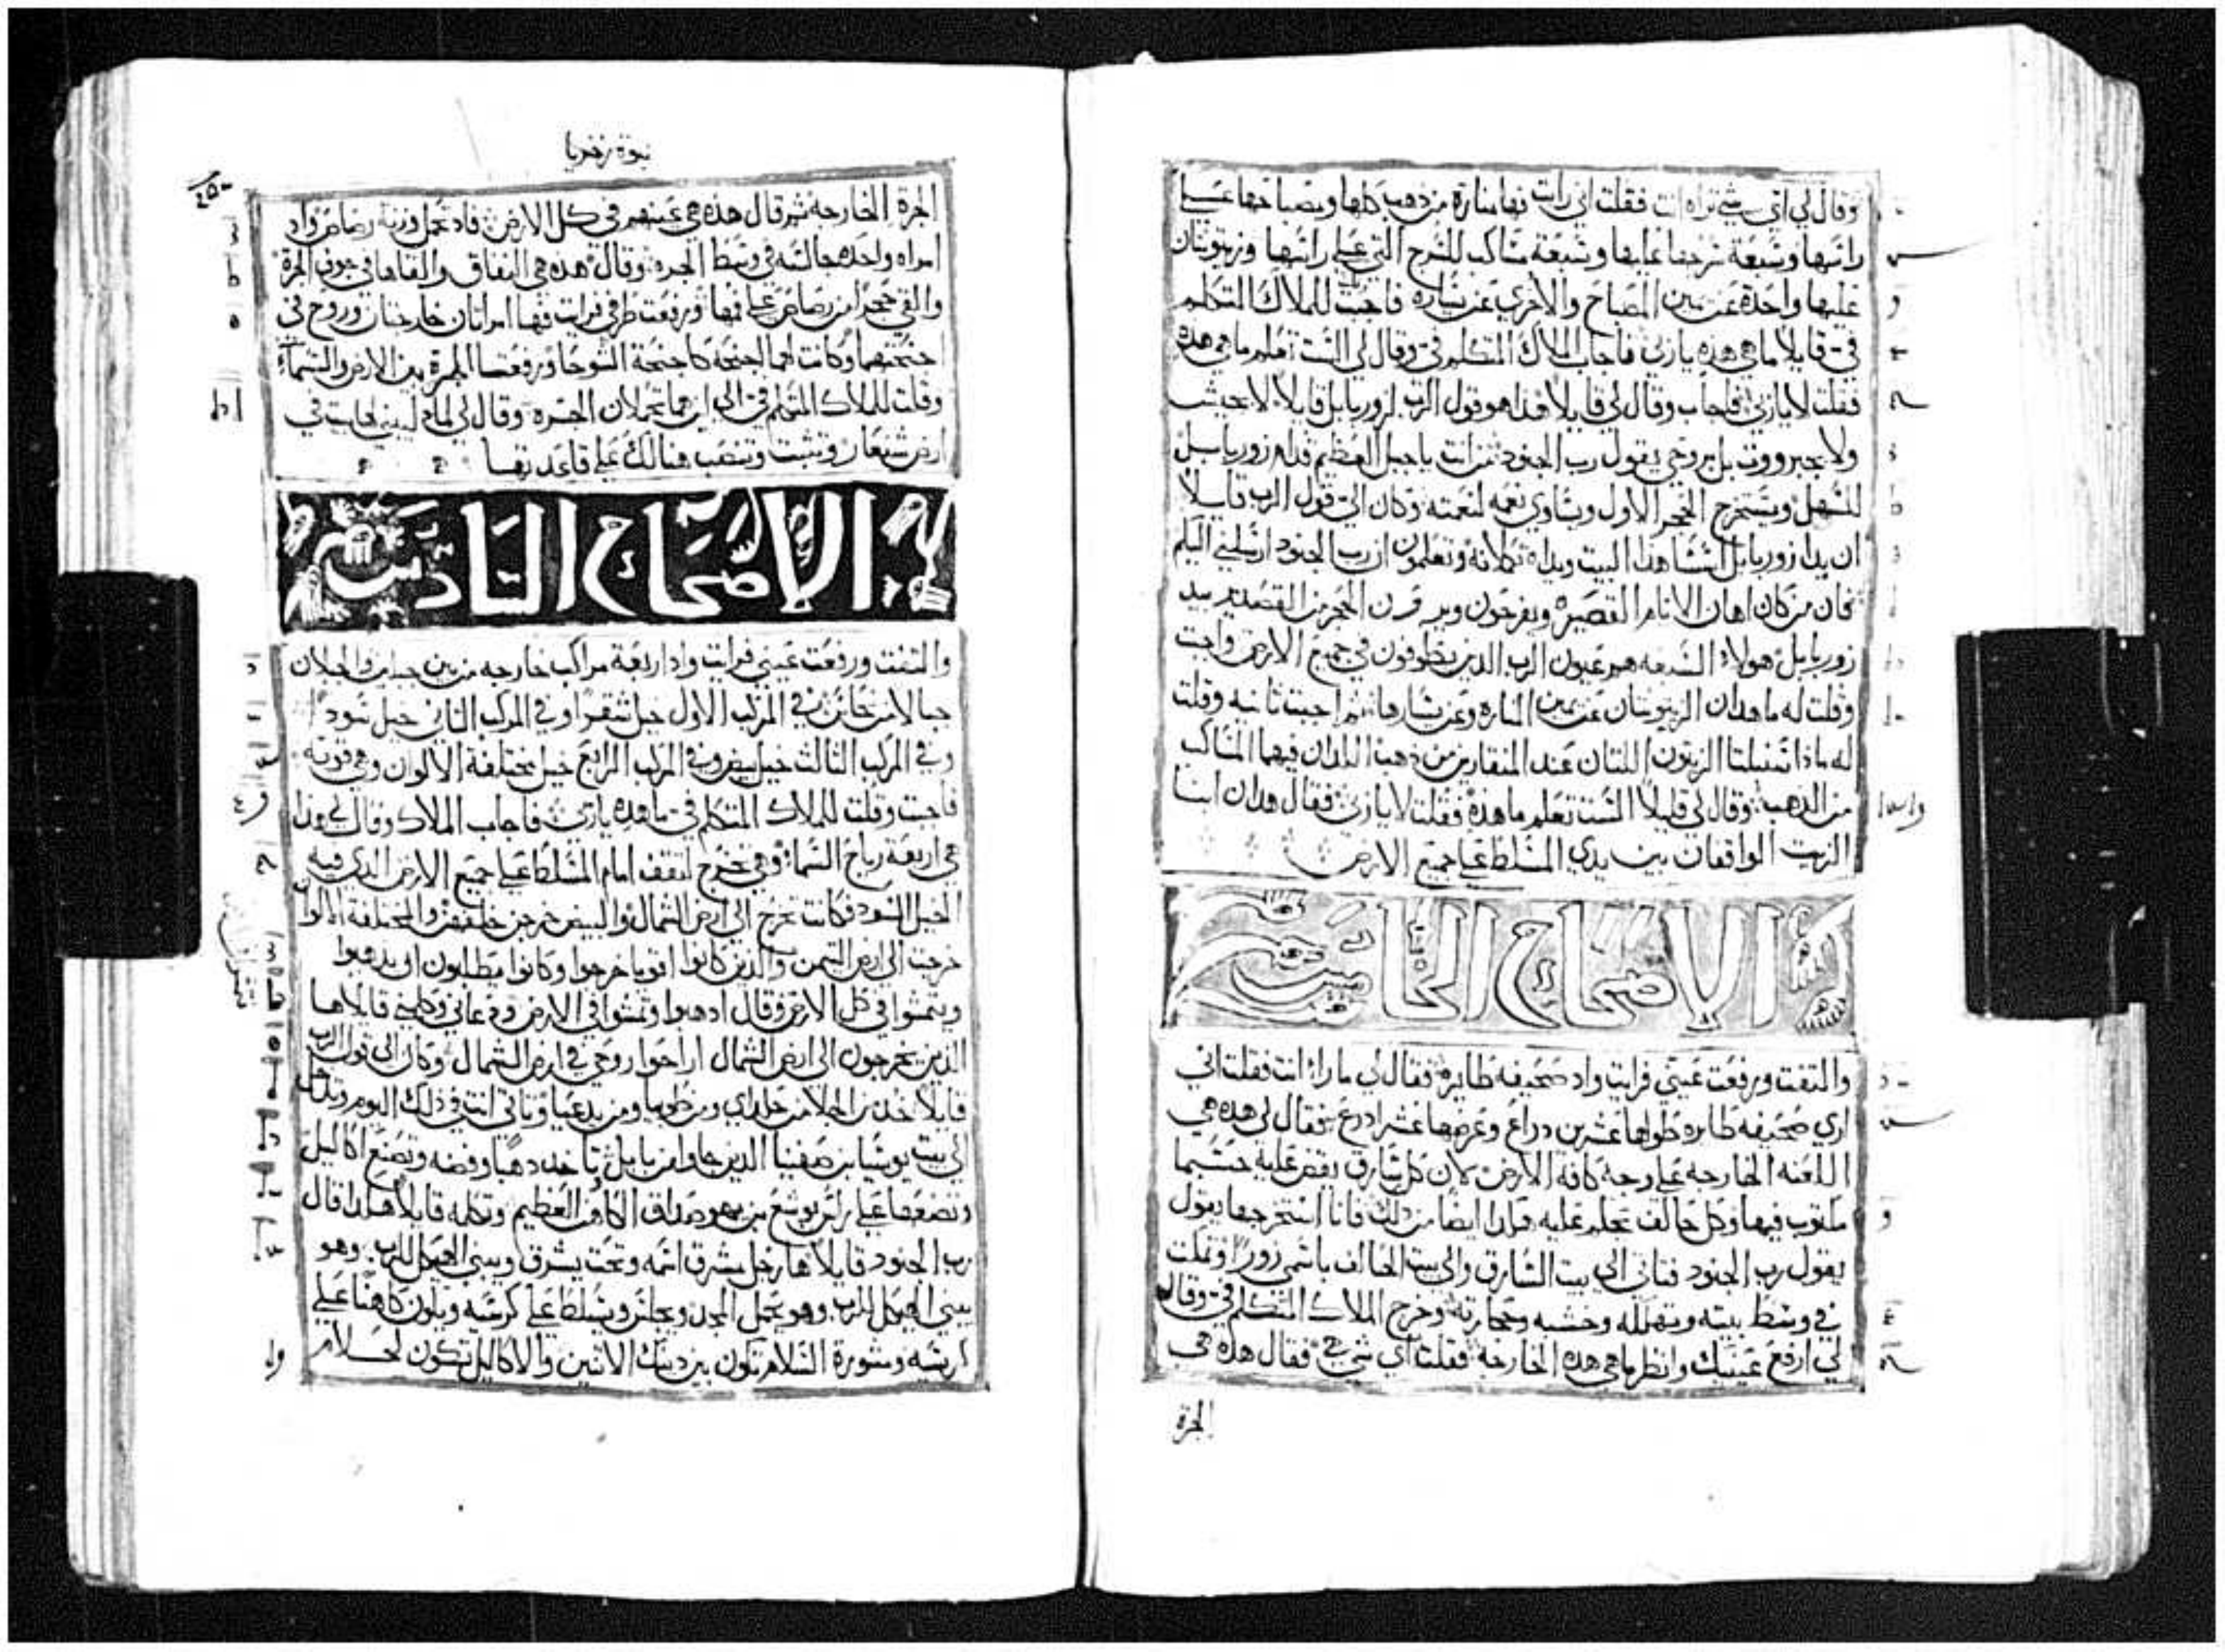 وقال لي اي شي تراه انت فقلت اني رايت بها منارة من ذهب كلها ومصباحها على
راسها وسبعة سرجها عليها وسبعة مساكب للسرج التي على راسها وزيتونتان
عليها واحدة عن يمين المصباح والأخري عن يساره فاجبت للملاك المتكلم
فيّ قايلاً ما هي هذه ياربي فاجاب الملاك المتكلم فيّ وقال لي الست تعلم ما هي هذه
فقلت لا ياربي فاجاب وقال لي قايلاً هذا هو قول الرب لزوربابل قايلاً لا بجيش
ولا بجبرووت بل بروحي يقول رب الجنود من انت يا جبل العظيم قدام زوربابل
للسهل ويستخرج الحجر الاول ويساوي نعمه لنعمته وكان اليّ قول الرب قايلاً
ان يدا زوربابل اسسا هذا البيت ويداه تكملانه وتعلمون ان رب الجنود ارسلني اليكم
فان من كان اهان الايام القصيرة ويفرحون ويرون الحجر من القصدير بيد
زوربابل هولاء السبعه هم عيون الرب الذين يطوفون في جميع الارض واجبت
وقلت له ما هدان الزيتونتان عن يمين المناره وعن يسارها ثم اجبت ثانيه وقلت
له ماذا سنبلتا الزيتون اللتان عند المنقارين من ذهب اللذان فيهما المساكب
من الذهب وقال لي قايلاً الست تعلم ما هذه فقلت لا ياربي فقال هدان ابنا
الزيت الواقفان بين يدي المسلط على جميع الارض
الاصحاح الخامس
والتفت ورفعت عينيّ فرايت واد صحيفه طايره فقال لي ما راا انت فقلت اني
اري صحيفه طايره طولها عشرين دراع وعرضها عشر ادرع فقال لي هذه هي
اللعنه الخارجه على وجه كافة الارض لان كل سارق يقضي عليه حسبما
مكتوب فيها وكل حالف يحكم عليه هكذا ايضاً من ذلك فانا استخرجها يقول
يقول رب الجنود فتاتي الى بيت السارق والى بيت الحالف باسمي زوراً وتمكت
في وسط بيته وتهلكه وخشبه وحجارته وخرج الملاك المتكلم فيّ وقال
لي ارفع عينيك وانظر ما هي هذه الخارجة فقلت اي شي هي فقال هذه هي
الجرة
نبوة زخريا
الجرة الخارجه ثم قال هذه هي عينهم في كل الارض فاد تحمل وزنة رصاص واد
امراه واحده جالسه في وسط الجره وقال هذه هي النفاق والقاها في جوف الجرة
والقي حجراً من رصاص على فمها ورفعت طرفي فرايت فها امراتان خارجتان وروح في
اجنحتهما وكانت لهما اجنحه كاجنحة الشوحا ورفعتا الجرة بين الارض والسماء
وقلت للملاك المتكلم فيّ الى اين هما تحملان الجره وقال لي لماء لبيني لها بيت في
ارض شنعار وتثبت وتنصب هنالك على قاعدتها
الاصحاح السادس
والتفت ورفعت عينيّ فرايت واد اربعة مراكب خارجه من بين جبلين والجبلان
جبالا من نحاس في المركب الاول خيل شقراً وفي المركب الثاني خيل سوداً
وفي المركب الثالث خيل بيض وفي المركب الرابع خيل مختلفة الالوان وهي قويه
فاجبت وقلت للملاك المتكلم فيّ ما هذه ياربي فاجاب الملاك وقال لي هذا
هي اربعة رياح السماء وهي تخرج لتقف امام المسلط على جميع الارض الدي فيه
الخيل السود فكانت تخرج الى ارض الشمال والبيض خرجن خلفهن والمختلفة الالوان
خرجت الى ارض التيمن والذين كانوا اقويا خرجوا وكانوا يطلبون ان يدهبوا
ويتمشوا في كل الارض وقال ادهبوا وتمشوا في الارض ودعاني وكلمني قايلاً ها
الذين يخرجون الى ارض الشمال اراحوا روحي في ارض الشمال وكان اليّ قول الرب
قايلاً خذ من الجلا من خلداي ومن طوبيا ومن يدعيا وتاتي انت في ذلك اليوم وتدخل
الى بيت يوشيا بن صفنيا الذين جاوا من بابل تاخد دهباً وفضه وتصنع اكاليل
وتضعها على راس يوشع بن يهوصداق الكاهن العظيم وتكلمه قايلاً هكدا قال
رب الجنود قايلاً ها رجل يشرق اسمه وتحته يشرق ويبني الهيكل للرب وهو
يبني الهيكل للرب وهو يحمل المجد ويجلس ويسلط على كرسيه ويكون كاهناً على
كرسيه ومشورة السلام تكون بين دينك الاتنين والاكاليل تكون لحلام